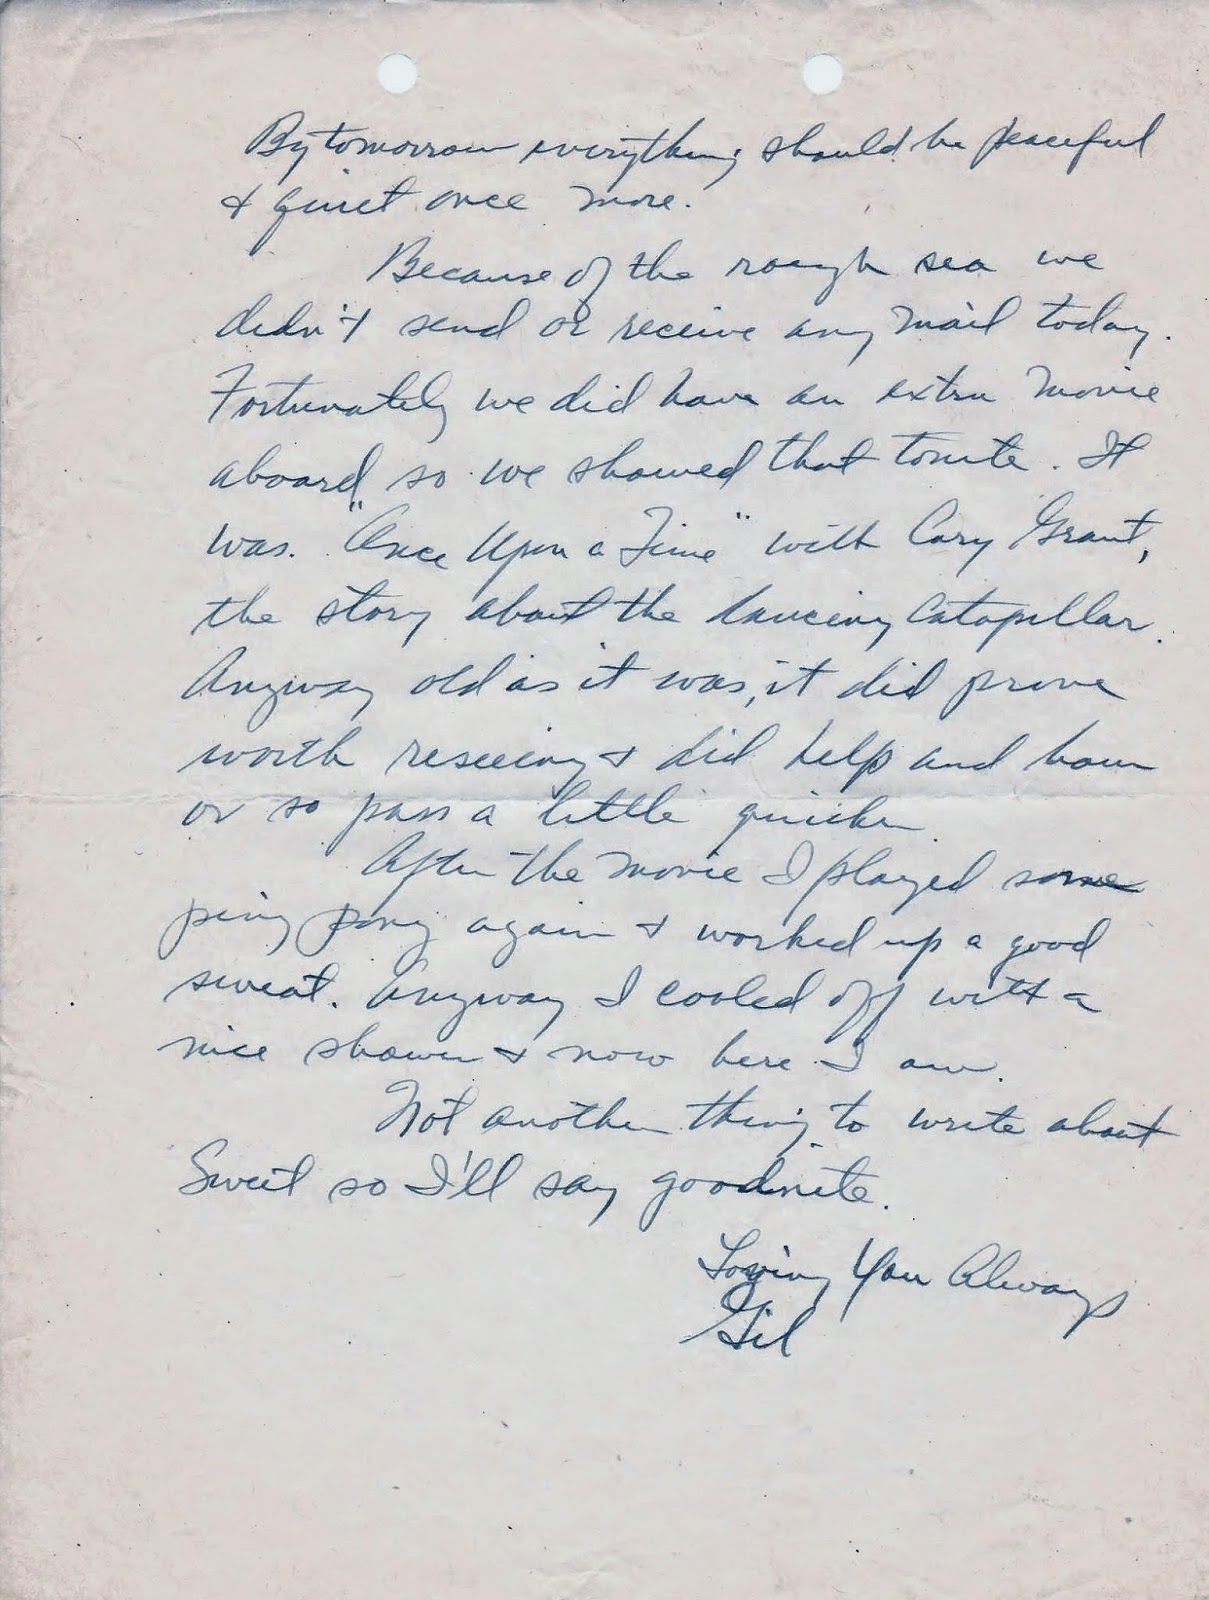 By tomorrow everything should be peaceful
& quiet once more.
Because of the rough sea we
didn't send or receive any mail today.
Fortunately we did have an extra movie
aboard so we showed that tonite. It
was. "Once Upon a Time" with Cary Grant,
the story about the dancing Catapillar.
Anyway old as it was, it did prove
worth reseeing & did help and hour
or so pass a little quicker
After the movie I played some
ping pong again & worked up a good
sweat. Anyway I cooled off with a
nice shower & now here I am.
Not another thing to write about
Sweet so I'll say goodnite.
Loving You Always
Gil